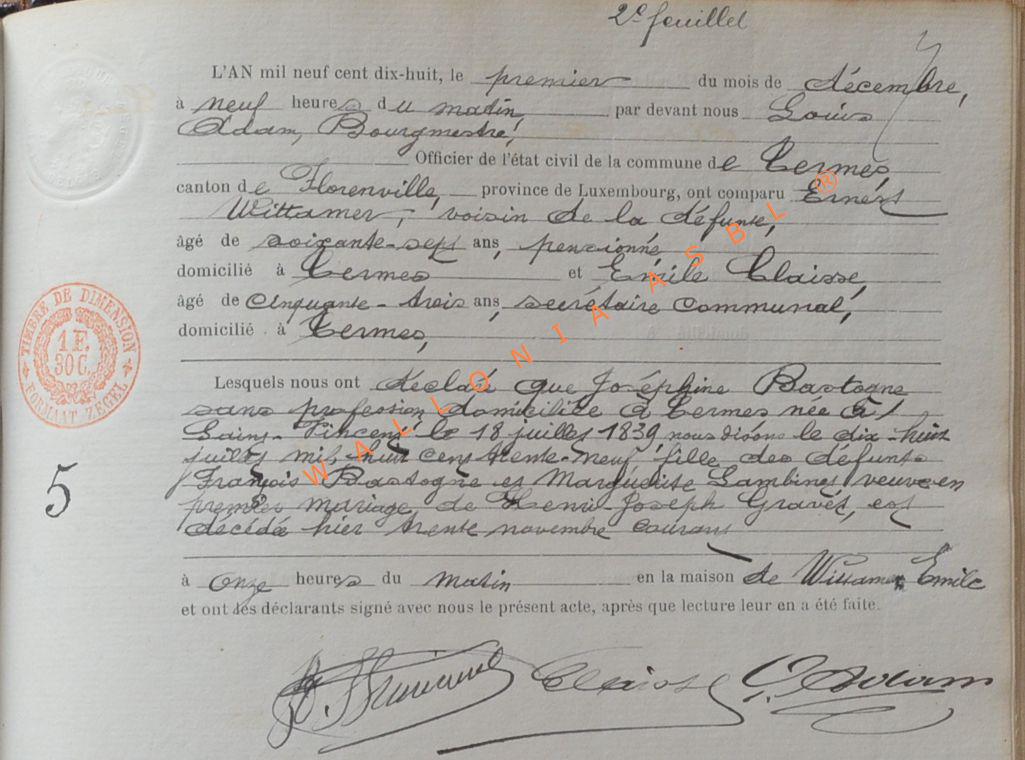 2e feuillet
L'AN mil neuf cent dix-huit, le premier du mois de décembre,
à neuf heures du matin, par devant nous Louis
Adam, Bourgmestre,
Officier de l'état civil de la commune de Termes,
canton de Florenville, province de Luxembourg, ont comparu Ernest
Wittamer, voisin de la défunte,
âgé de soixante-sept ans, pensionné,
domicilié à Termes et Emile Claisse,
âgé de cinquante-trois ans, secrétaire communal,
domicilié à Termes,
Lesquels nous ont déclaré que Joséphine Bastogne
sans profession domiciliée à Termes née à
Saint-Vincent le 18 juillet 1839 nous disons le dix-huit
juillet mil huit cent trente-neuf fille des défunts
François Bastogne et Marguerite Lambinet veuve en
premier mariage de Henri-Joseph Gravet, est
décédée hier trente novembre courant
à onze heures du matin en la maison de Wittamer Emile
et ont les déclarants signé avec nous le présent acte, après que lecture leur en a été faite.
Claisse L. Adam
TIMBRE DE DIMENSION
1 F.
30 C.
FORMAAT ZEGEL
5
WALLONIA ASBL ®